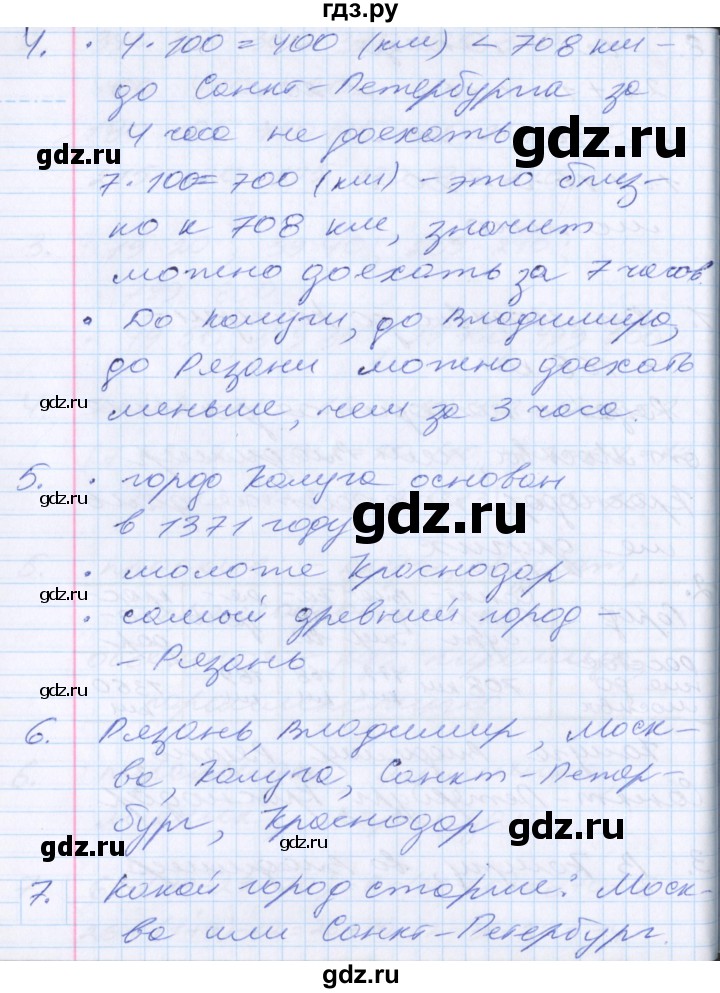 гдз.ру
4. • 4·100 = 400 (км) < 708 км -
до Санкт-Петербурга за
4 часа не доехать
7·100 = 700 (км) - это близ-
ко к 708 км, значит
можно доехать за 7 часов.
• До Калуги, до Владимира,
до Рязани можно доехать
меньше, чем за 3 часа.
5. • город Калуга основан
в 1371 году
• моложе Краснодар
• самый древний город -
- Рязань
6. Рязань, Владимир, Моск-
ва, Калуга, Санкт-Петер-
бург, Краснодар
7. Какой город старше: Моск-
ва или Санкт-Петербург.
gdz.ru
gdz.ru
gdz.ru
gdz.ru
gdz.ru
gdz.ru
gdz.ru
gdz.ru
gdz.ru
gdz.ru
gdz.ru
гдз.ру